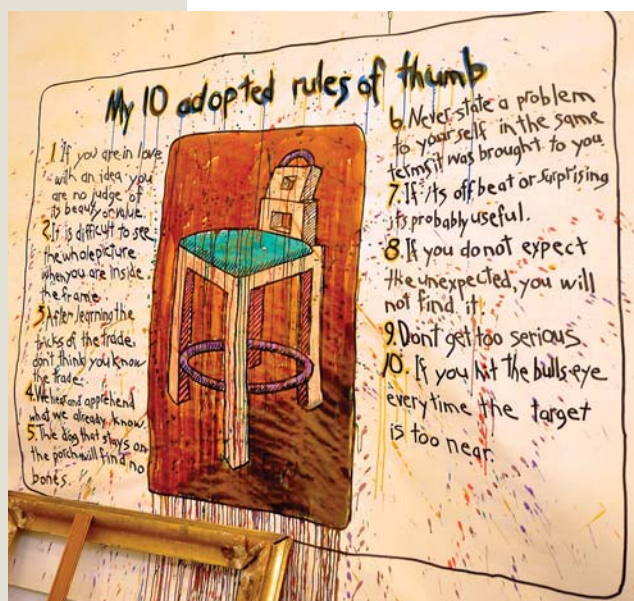 My 10 adopted rules of thumb
1. If you are in love
with an idea you
are no judge of
its beauty or value.
2. It is difficult to see
the whole picture
when you are inside
the frame
3 After learning the
tricks of the trade,
don't think you know
the trade.
4. We hear and apprehend
what we already know.
5. The dog that stays on
the porch will find no
bones.
6. Never state a problem
to yourself in the same
terms it was brought to you
7. If its off beat or surprising
its probably useful.
8. If you do not expect
the unexpected, you will
not find it.
9. Dont get too serious
10. If you hit the bulls-eye
everytime the target
is too near.